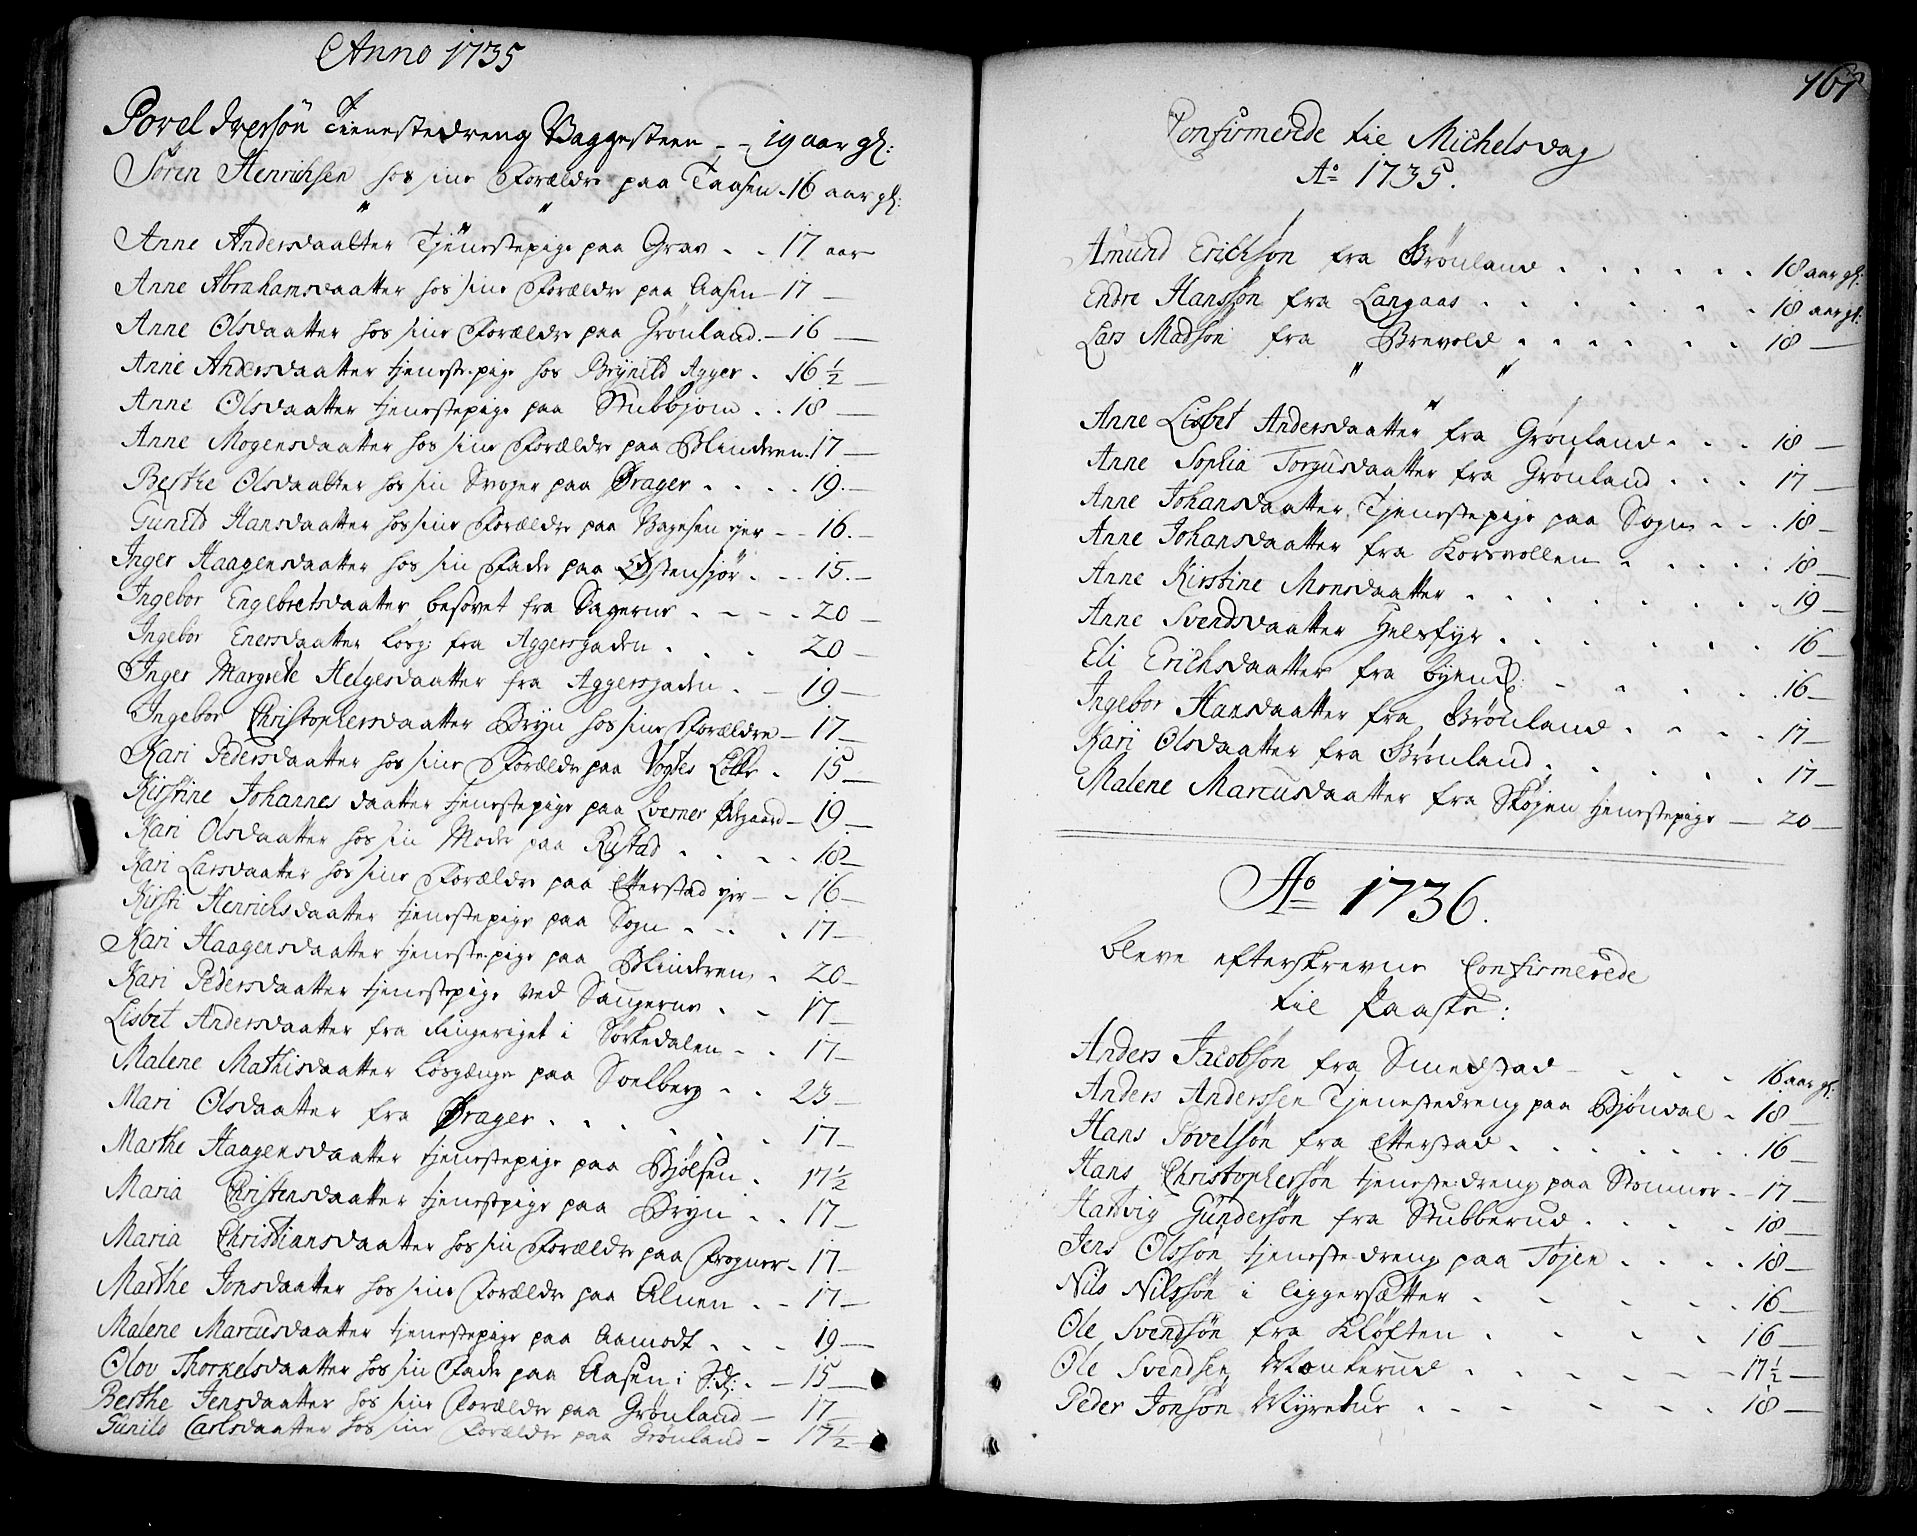 Anno 1735
Povel Iversön Tienestedreng Baggesteen - - 19 aar gl:
Sören Henrichsen hos sine Forældre paa Taasen - 16 aar gl:
Anne Andersdaatter Tjenestepige paa Grav - - 17 aar
Anne Abrahamsdaatter hos sine Forældre paa Aasen - 17 -
Anne Olsdaatter hos sine Forældre paa Grönland. - 16 -
Anne Andersdaatter tjenestepige hos Brynild Agger - 16 1/2 -
Anne Olsdaatter tjenestepige paa Stubbjom . . 18 -
Anne Mogensdaatter hos sine Forældre paa Blinderen. 17 -
Berthe Olsdaatter hos sin Svoger paa Drager . . . . 19. -
Gunild Hansdaatter hos sine Forældre paa - - 16. -
Inger Haagensdaatter hos sin Fader paa Østensjör . - - 15. -
Ingebor Engebretsdaatter besovet fra Sagerne - - - - 20 -
Ingebor Enersdaatter losg: fra Aggersgaden . . . 20 -
Inger Margrete Helgesdaatter fra Aggersgaden . - 19 -
Ingebor Christophersdaatter Bryn hos sine Forældre - 17 -
Kari Pedersdaatter hos sine Forældre paa Vogtes Løkke - 15 -
Kirstine Johannesdaatter tjenestepige paa Lverner - 19 -
Kari Olsdaatter hos sin Moder paa Rustad . . . . 18 -
Kari Larsdaatter hos sine Forældre paa Etterstad - - 16 -
Kirsti Henrichsdaatter tjenestepige paa Sogn . . . . 17 -
Kari Haagensdaatter tjenestepige paa Blinderen . 20 -
Kari Pedersdaatter tjenestepige ved Saugerne . - 17 -
Lisbet Andersdaatter fra Ringeriget i Sørkedalen - . 17 -
Malene Mathisdaatter losgænger paa Soelberg - - 23 -
Mari Olsdaatter fra Drager . . . . . . 17 -
Marthe Haagensdaatter tjenestepige paa Bjølsen . 17 1/2
Maria Christensdaatter tjenestpige paa Bryn . . 17 -
Maria Christiansdaatter hos sin Forældre paa Frogner. 17 -
Marthe Jonsdaatter hos sine Forældre paa Alnen . - 17 -
Malene Marcusdaatter tjenestepige paa Aamodt . . - 19 -
Olov Thorkelsdaatter hos sin Fader paa Aasen i - 15 -
Berthe Jensdaatter hos sine Forældre paa Grønland - 17
Gunild Carlsdaatter hos sine Forældre paa Grönland - 17 1/2
161
Confirmerede til Michelsdag
Ao 1735.
Amund Erichsön fra Grönland . . . . . . 18 aar gl:
Endre Hanssön fra Langaas . . . . . . 18 aar gl:
Lars Madsön fra Brevold . . . . . . 18 -
Anne Lisbet Andersdaatter fra Grønland . . . 18 -
Anne Sophia Torgusdaatter fra Grønland . . . 17 -
Anne Johansdaatter Tjenestepige paa Sogn - - . 18 -
Anne Johansdaatter fra Korsvollen . . . . . 18 -
Anne Kirstine Monsdaatter . . . . . . . 19 -
Anne Svendsdaatter Helsfyr . . . . . . 16 -
Eli Erichsdaatter fra byend . . . . . 16 -
Ingebor Hansdaatter fra Grönland . . . . 17 -
Kari Olsdaatter fra Grønland . . . . . . 17 -
Malene Marcusdaatter fra Skøjen tjenestepige - 20 -
Ao 1736.
bleve efterskrevne Confirmerede
til Paaske:
Anders Jacobsön fra Smedstad - . . . 16 aar gl:
Anders Anderssen Tjenestedreng paa Bjöndal - 18 -
Hans Povelsön fra Etterstad . . . . . . . 16 -
Hans Christophersön tjenestedreng paa - 17 -
Hartvig Gundersön fra Stubberud . . . . 18 -
Jens Olssön tjenestedreng paa Tøjen . . . . 18 -
Nils Nilssön i Liggersætter . . . . . 16 -
Ole Svendsön fra Kløften . . . . 16 -
Ole Svendsen Munkerud . . . . . 17 1/2 -
Peder Jonsön Myrerud . . . . . . 18 -